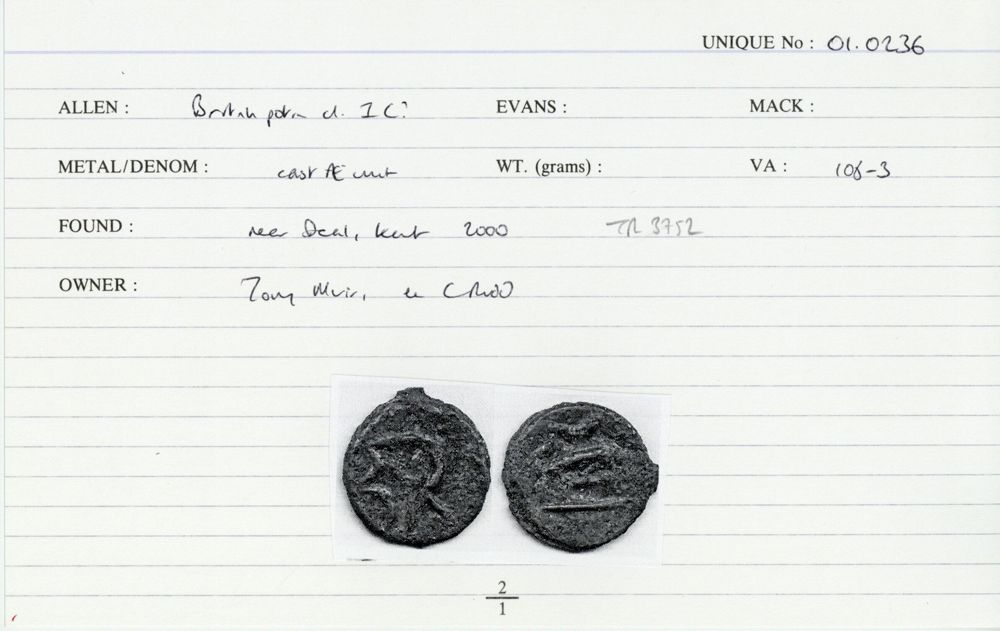 UNIQUE No : 01.0236
ALLEN : British potin cl. I C? EVANS : MACK :
METAL/DENOM : cast Æ unit WT. (grams) : VA : 108-3
FOUND : near Deal, Kent 2000 TR 3752
OWNER : Tony Muir,
2
1